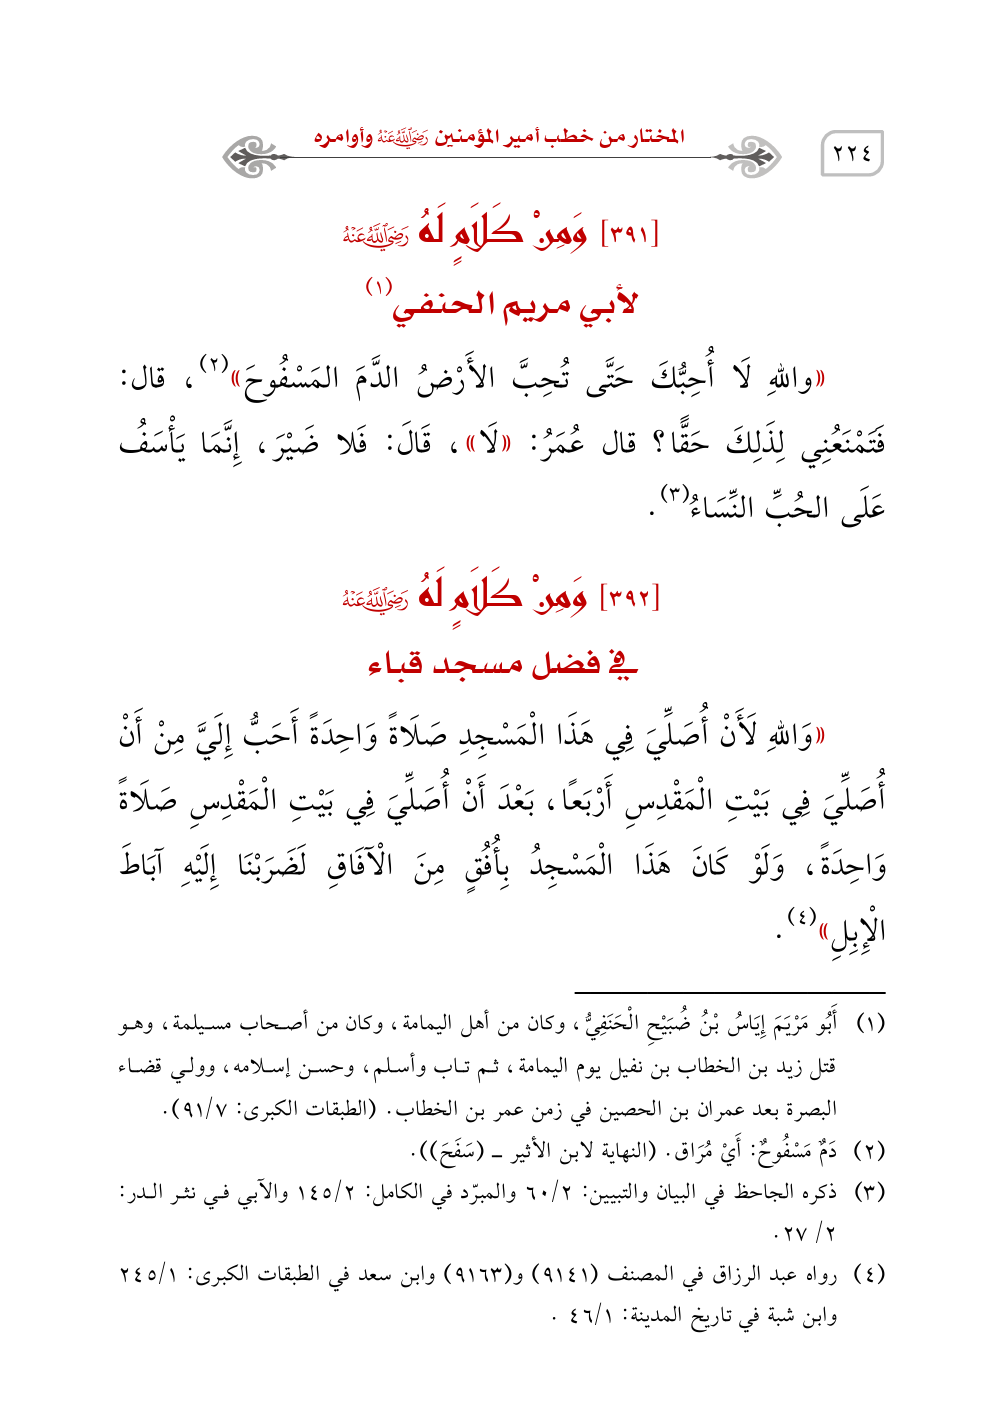 ٢٢٤
المختار من خطب أمير المؤمنين رَضِيَ اللَّهُ عَنْهُ وأوامره
[٣٩١] وَمِنْ كَلَامٍ لَهُ رَضِيَ اللَّهُ عَنْهُ
لأبي مريم الحنفي(١)
«واللهِ لَا أُحِبُّكَ حَتَّى تُحِبَّ الأَرْضُ الدَّمَ المَسْفُوحَ»(٢)، قال:
فَتَمْنَعُنِي لِذَلِكَ حَقًّا؟ قال عُمَرُ: «لَا»، قَالَ: فَلا ضَيْرَ، إِنَّمَا يَأْسَفُ
عَلَى الحُبِّ النِّسَاءُ(٣).
[٣٩٢] وَمِنْ كَلَامٍ لَهُ رَضِيَ اللَّهُ عَنْهُ
في فضل مسجد قباء
«وَاللهِ لَأَنْ أُصَلِّيَ فِي هَذَا الْمَسْجِدِ صَلَاةً وَاحِدَةً أَحَبُّ إِلَيَّ مِنْ أَنْ
أُصَلِّيَ فِي بَيْتِ الْمَقْدِسِ أَرْبَعًا، بَعْدَ أَنْ أُصَلِّيَ فِي بَيْتِ الْمَقْدِسِ صَلَاةً
وَاحِدَةً، وَلَوْ كَانَ هَذَا الْمَسْجِدُ بِأُفُقٍ مِنَ الْآفَاقِ لَضَرَبْنَا إِلَيْهِ آبَاطَ
الْإِبِلِ»(٤).
(١) أَبُو مَرْيَمَ إِيَاسُ بْنُ ضُبَيْحِ الْحَنَفِيُّ، وكان من أهل اليمامة، وكان من أصحاب مسيلمة، وهو
قتل زيد بن الخطاب بن نفيل يوم اليمامة، ثم تاب وأسلم، وحسن إسلامه، وولي قضاء
البصرة بعد عمران بن الحصين في زمن عمر بن الخطاب. (الطبقات الكبرى: ٩١/٧).
(٢) دَمٌ مَسْفُوحٌ: أَيْ مُرَاق. (النهاية لابن الأثير ـ (سَفَحَ)).
(٣) ذكره الجاحظ في البيان والتبيين: ٦٠/٢ والمبرّد في الكامل: ١٤٥/٢ والآبي في نثر الدر:
٢/ ٢٧.
(٤) رواه عبد الرزاق في المصنف (٩١٤١) و(٩١٦٣) وابن سعد في الطبقات الكبرى: ٢٤٥/١
وابن شبة في تاريخ المدينة: ٤٦/١ .